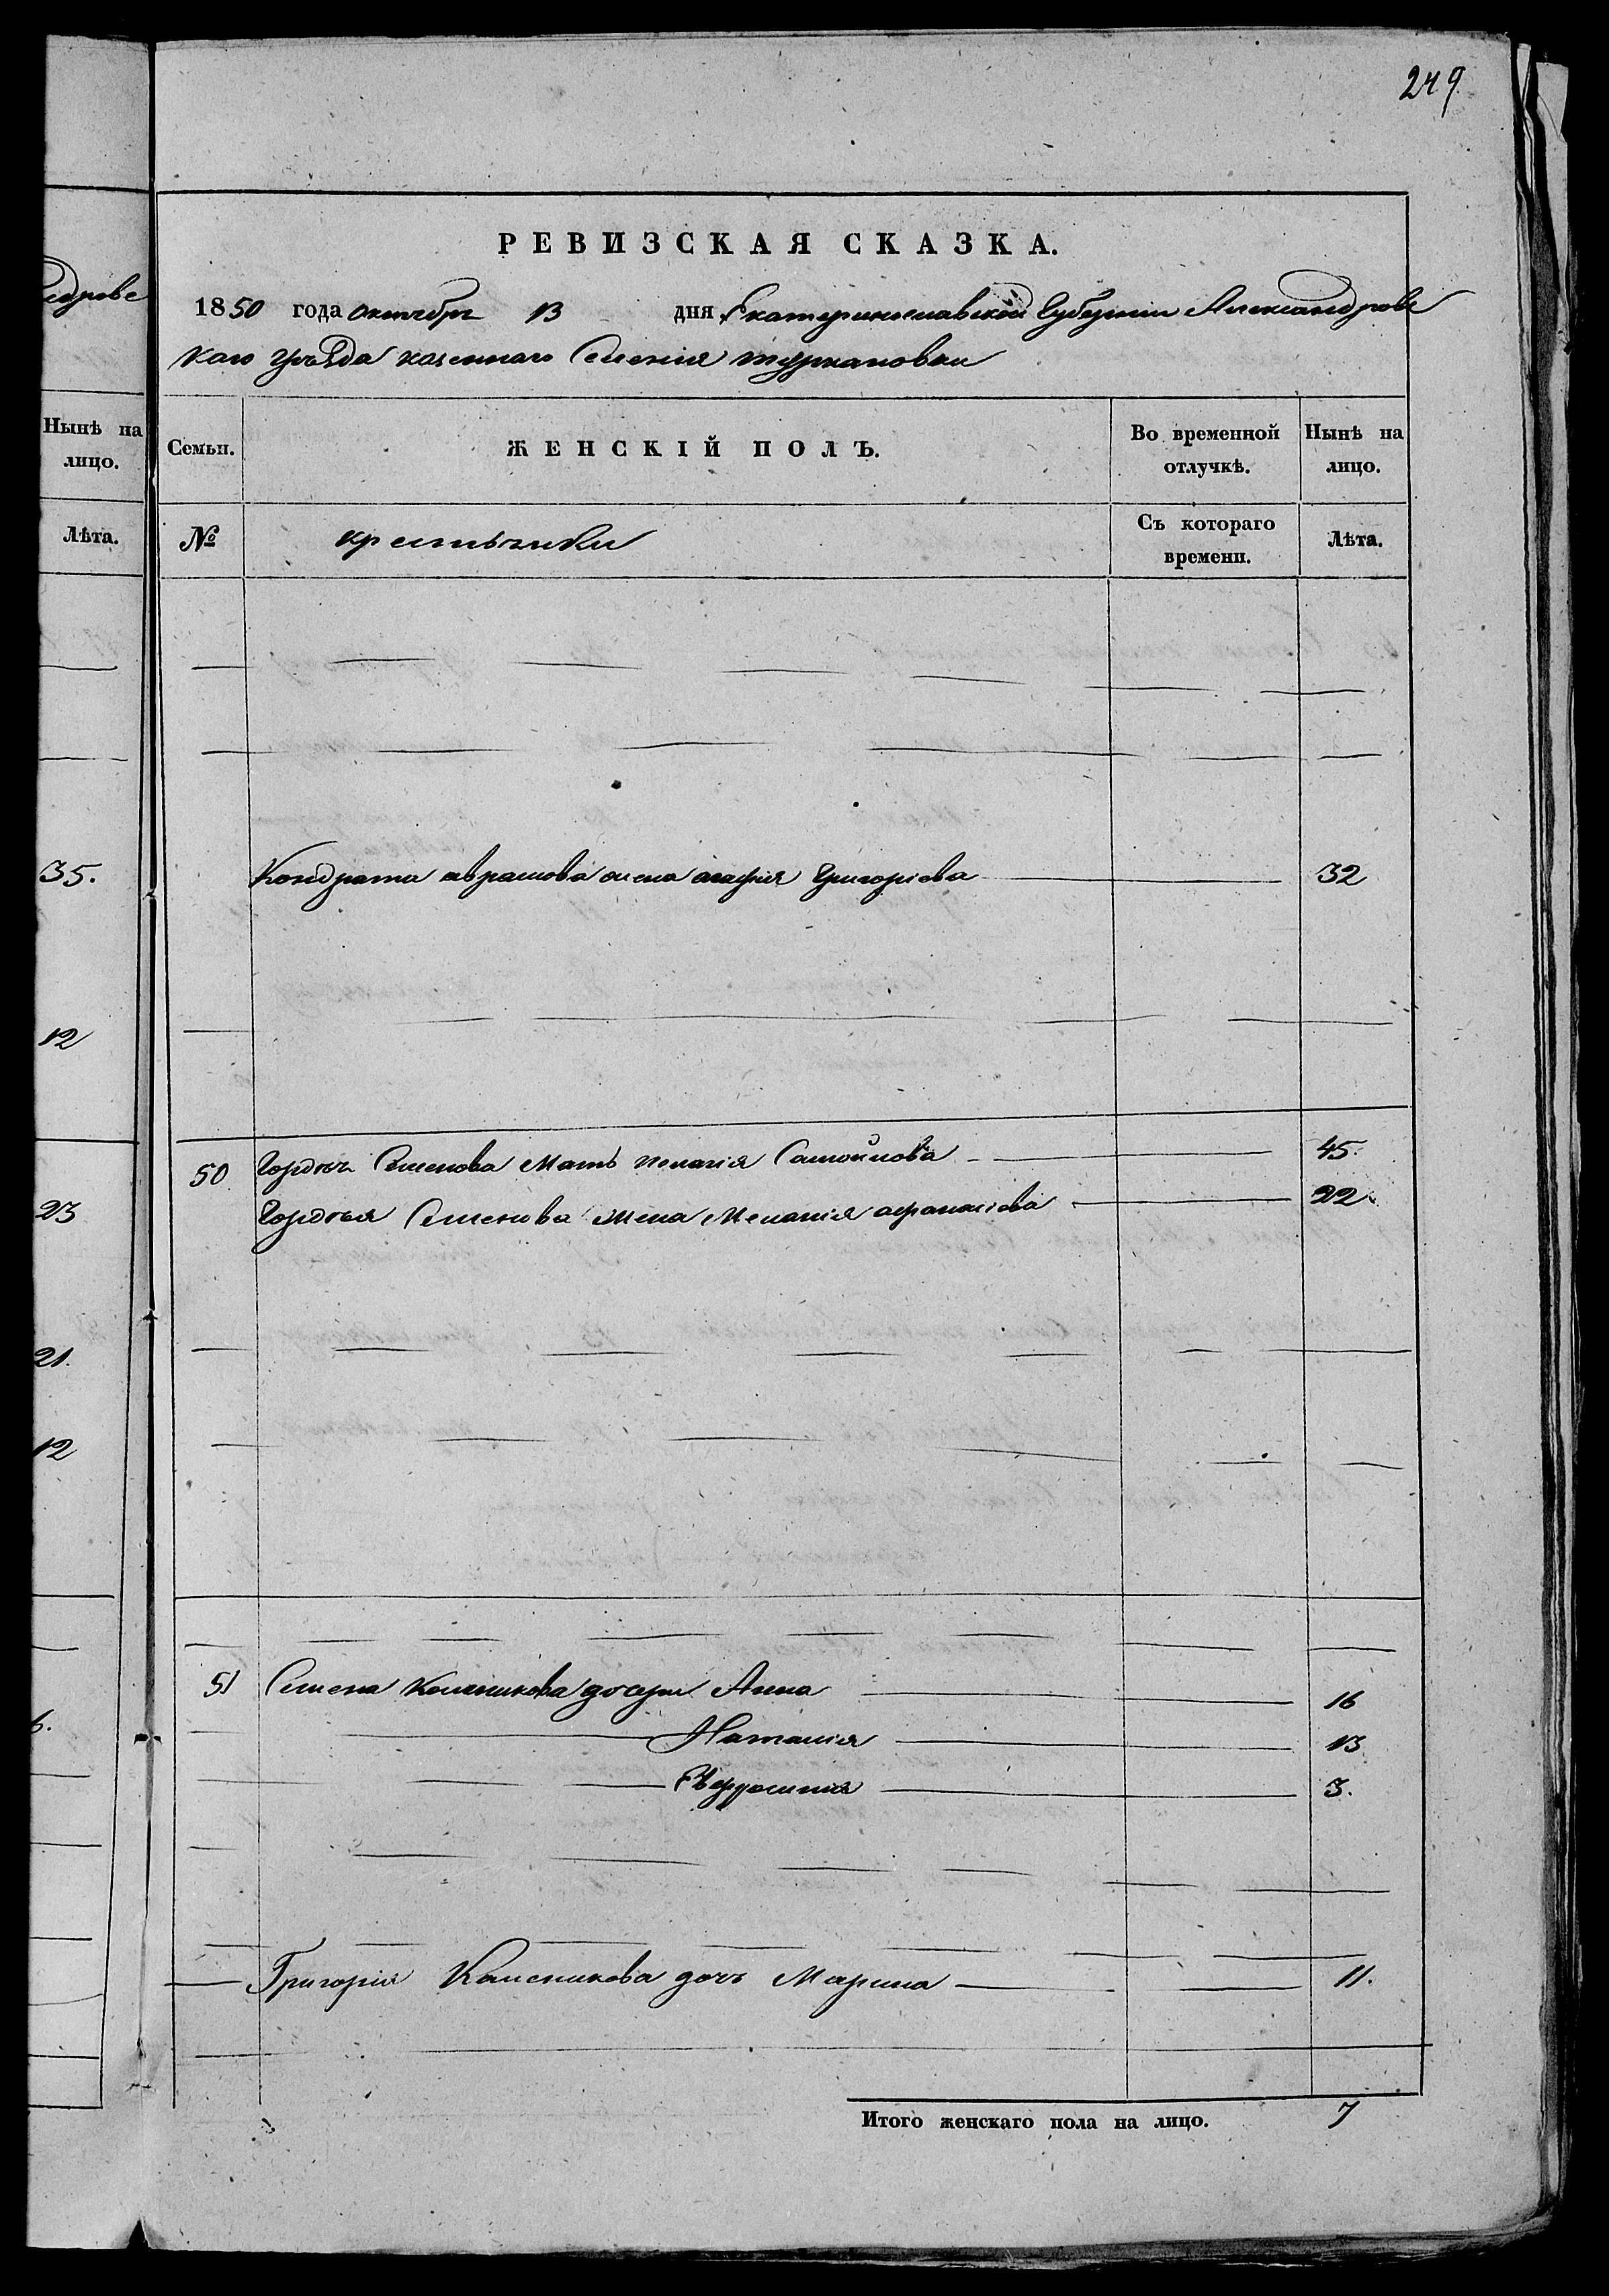 249
едровс
РЕВИЗСКАЯ СКАЗКА.
1850 года октября 13 дня Екатеринославской Губернии Александровс
каго уѣзда казеннаго Селенія туркановки
Нынѣ на лицо.
Семьи. ЖЕНСКІЙ ПОЛЪ. Во временной отлучкѣ. Нынѣ на лицо.
Лѣта.
№ крестьянки Съ котораго времени. Лѣта.
35.
Кондрата аврамова жена агафія Григоріева 32
12
50 Гордѣя Семенова Мать пелагія Самойлова 45.
23
Гордѣя Семенова жена Меланія афанасіева 22
21.
12
51 Семена Колесникова дочери Анна 16
6.
Наталія 13
Ефросинія 3.
Григорія Колесникова дочь Марина 11.
Итого женскаго пола на лицо. 7